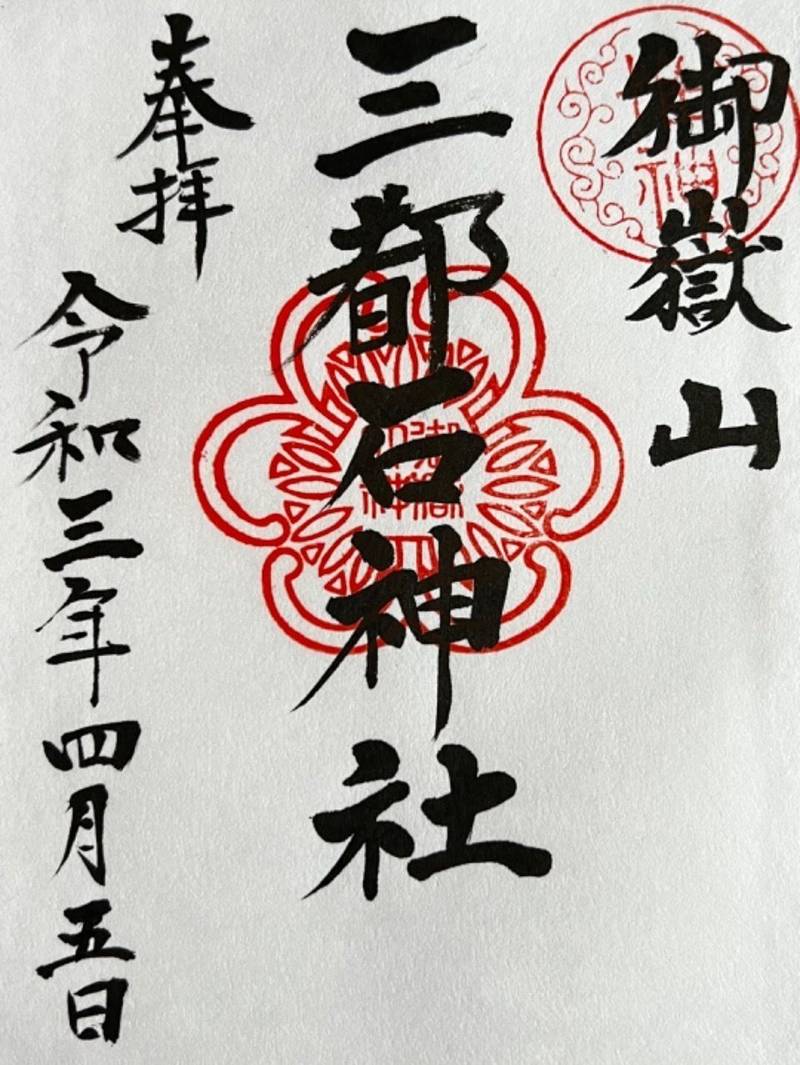 御嶽山
三都石神社
奉拝
令和三年四月五日